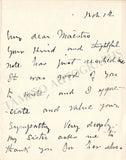 Nov. 14
My dear Maestro
Your kind and
note has just reached me
It was good of you
to write and I appre-
ciate and value your
sympathy very deeply
My sister asks me to
thank you for her also